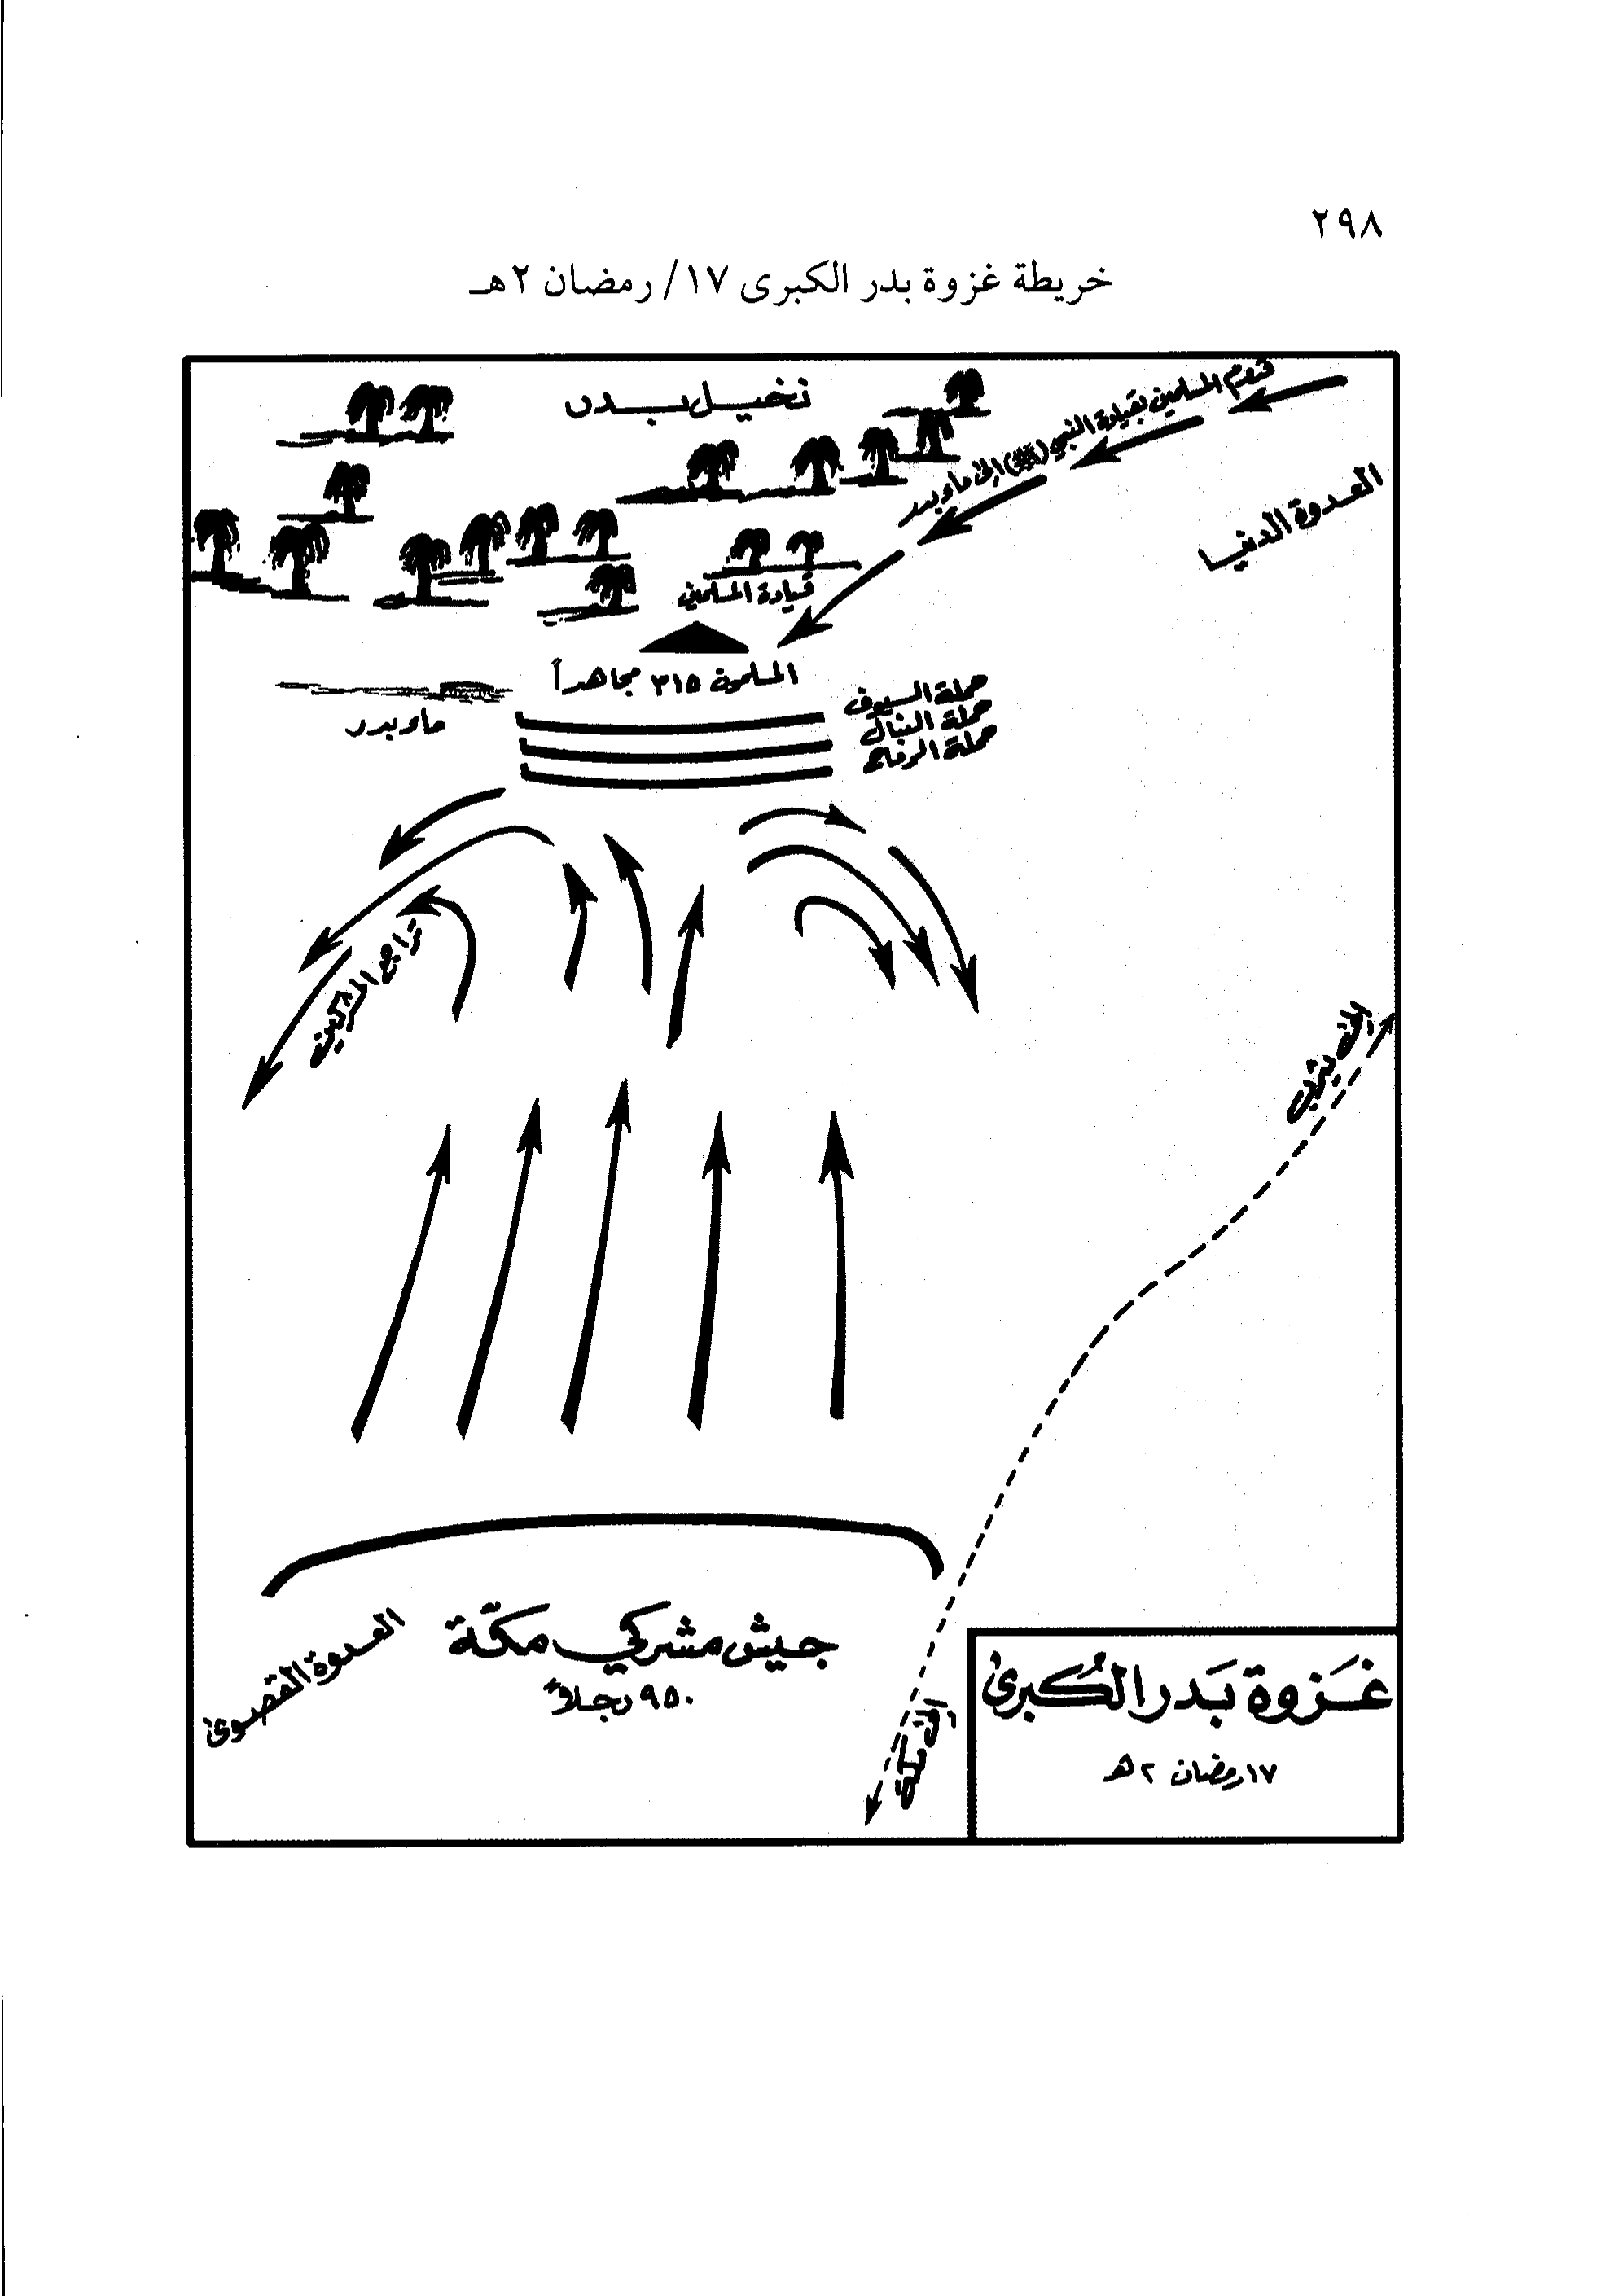 ٢٩٨
خريطة غزوة بدر الكبرى ١٧/ رمضان ٢هـ
نخيل بدر
قدوم المسلمين بقيادة النبي (ﷺ) إلى ماء بدر
العدوة الدنيا
قيادة المسلمين
المسلمون ٣١٥ مجاهداً
حملة السيوف
حملة النبال
حملة الرماح
ماء بدر
تراجع المشركين
إلى يثرب
جيش مشركي مكّة
٩٥٠ رجلاً
العدوة القصوى
إلى مكة
غَزوة بَدر الكُبرى
١٧ رمضان ٢ هـ